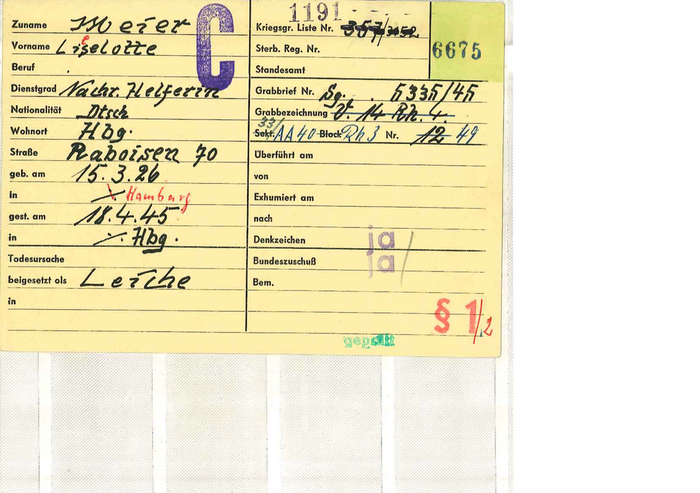 1191
Zuname Meier
Vorname Liselotte
Beruf
Dienstgrad Nachr. Helferin
Nationalität Dtsch
Wohnort Hbg.
Straße Raboisen 70
geb. am 15.3.26
in ./. Hamburg
gest. am 18.4.45
in ./. Hbg.
Todesursache
beigesetzt als Leiche
in
C
Kriegsgr. Liste Nr. 357/3152
Sterb. Reg. Nr.
Standesamt
6675
Grabbrief Nr. Sg.
Grabbezeichnung V. 14 Rh. 4.
33/
Sekt. AA40 Block Rh3 Nr. 12 49
Überführt am
von
Exhumiert am
nach
Denkzeichen ja
Bundeszuschuß ja
Bem.
§ 1/2
geprüft